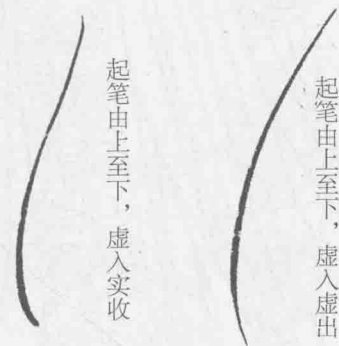 起笔由上至下，虚入实收
起笔由上至下，虚入虚出